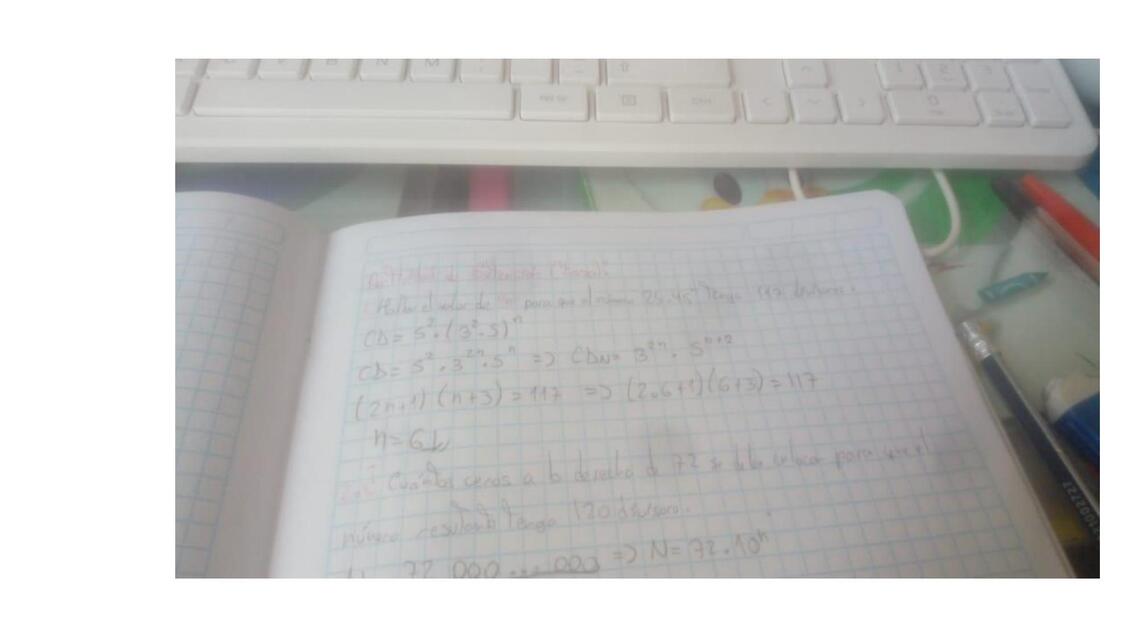 Cantidad de
Hallar el valor de "n" para que el número 25.45ⁿ tenga 117 divisores.
CD = 5².(3².5)ⁿ
CD = 5².3²ⁿ.5ⁿ => CDN = 3²ⁿ.5ⁿ⁺²
(2n+1)(n+3) = 117 => (2.6+1)(6+3) = 117
n = 6
Cuántos ceros a la derecha de 72 se debe colocar para que el
número resultante tenga 120 divisores.
72 000 ... 000 => N = 72.10ⁿ